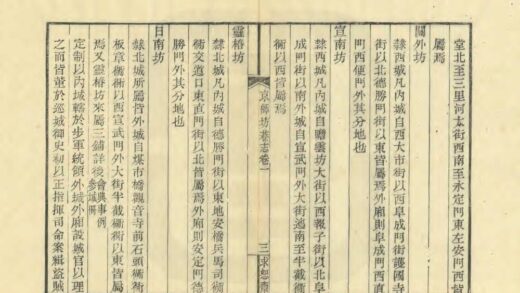 堂北至三里河大街西南至永定門東左安門西皆
屬焉
關外坊
隸西城凡內城自西大市街以西阜成門街護國寺
街以北德勝門街以東皆屬焉外廂則阜成門西直
門西便門外其分地也
宣南坊
隸西城凡內城自瞻雲坊大街以西報子街以北阜
成門街以南外城自宣武門外大街迤南至半截衚
衕以西皆屬焉
京師坊巷志卷一
三
求恕齋
靈椿坊
隸北城凡內城自德勝門街以東地安橋兵馬司衚
衕交道口東直門街以北皆屬焉外廂則安定門德
勝門外其分地也
日南坊
隸北城所屬皆外城自煤市橋觀音寺前石頭衚衕
板章衚衕以西宣武門外大街半截衚衕以東皆屬
焉又靈椿坊來屬三鋪詳後會典事例
定制以內城轄於步軍統領外城外廂設城官以理
之而皆董於巡城御史初以正指揮司命案緝盜賊